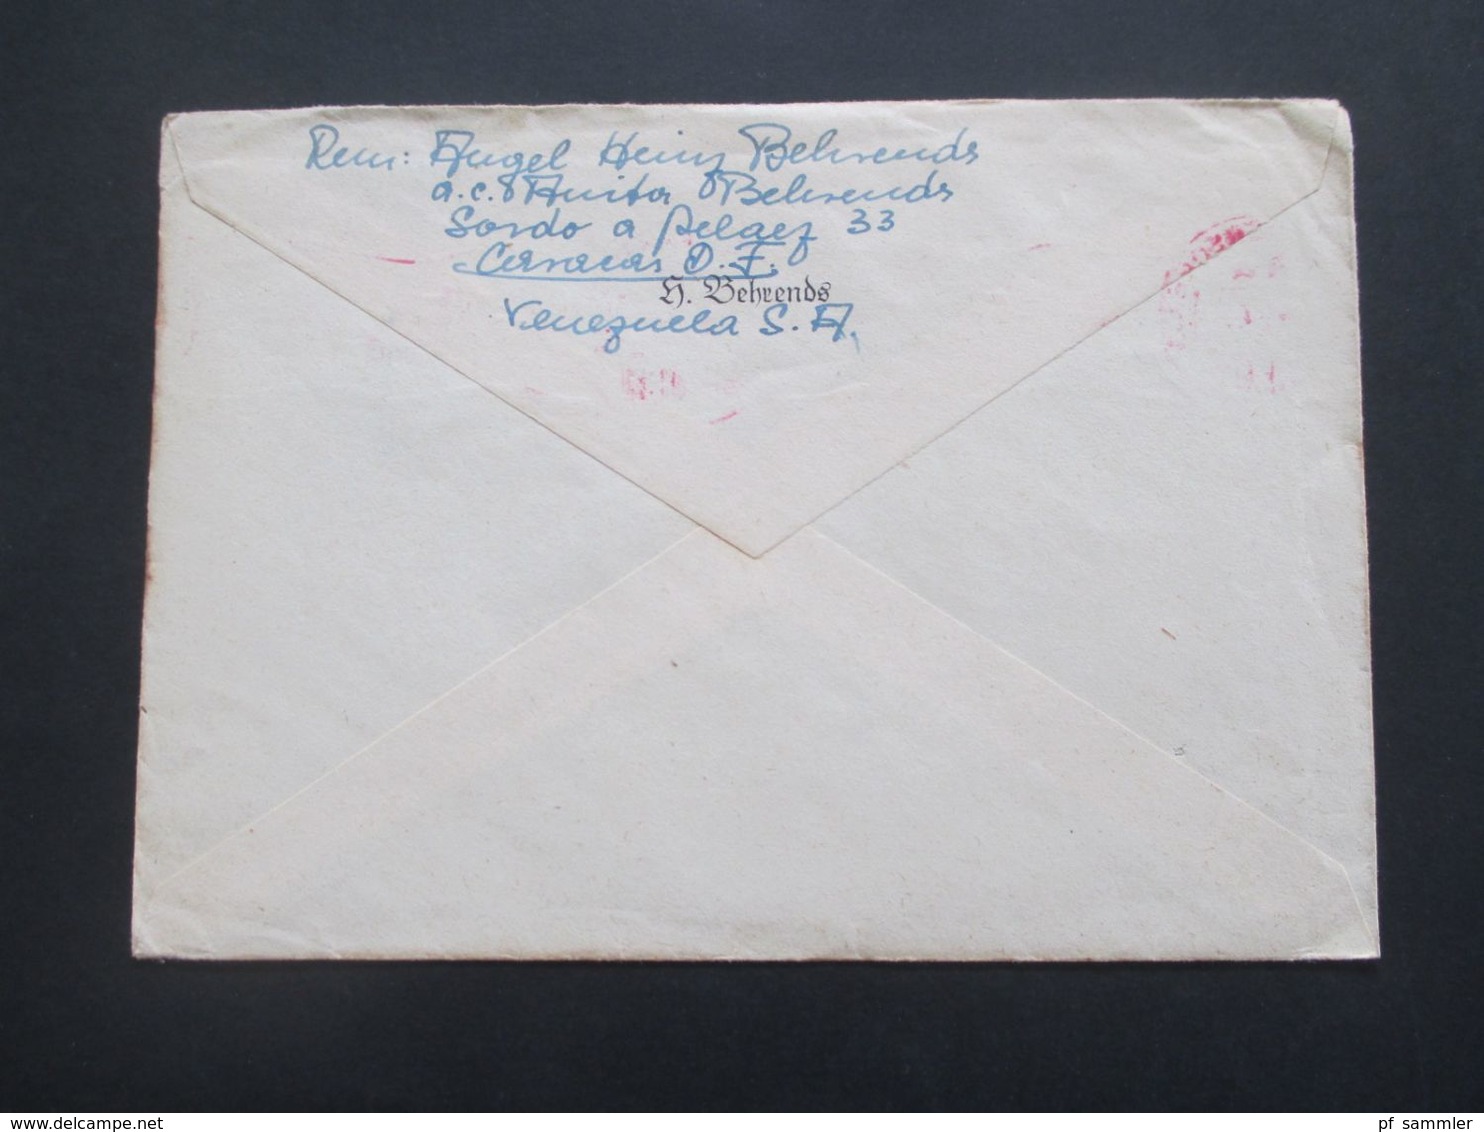 Rem: Angel Heinz Behrends
a.c. Anita Behrends
Sordo a Pelaez 33
Caracas D.F.
H. Behrends
Venezuela S.A.
delcampe.net
pf_sammler